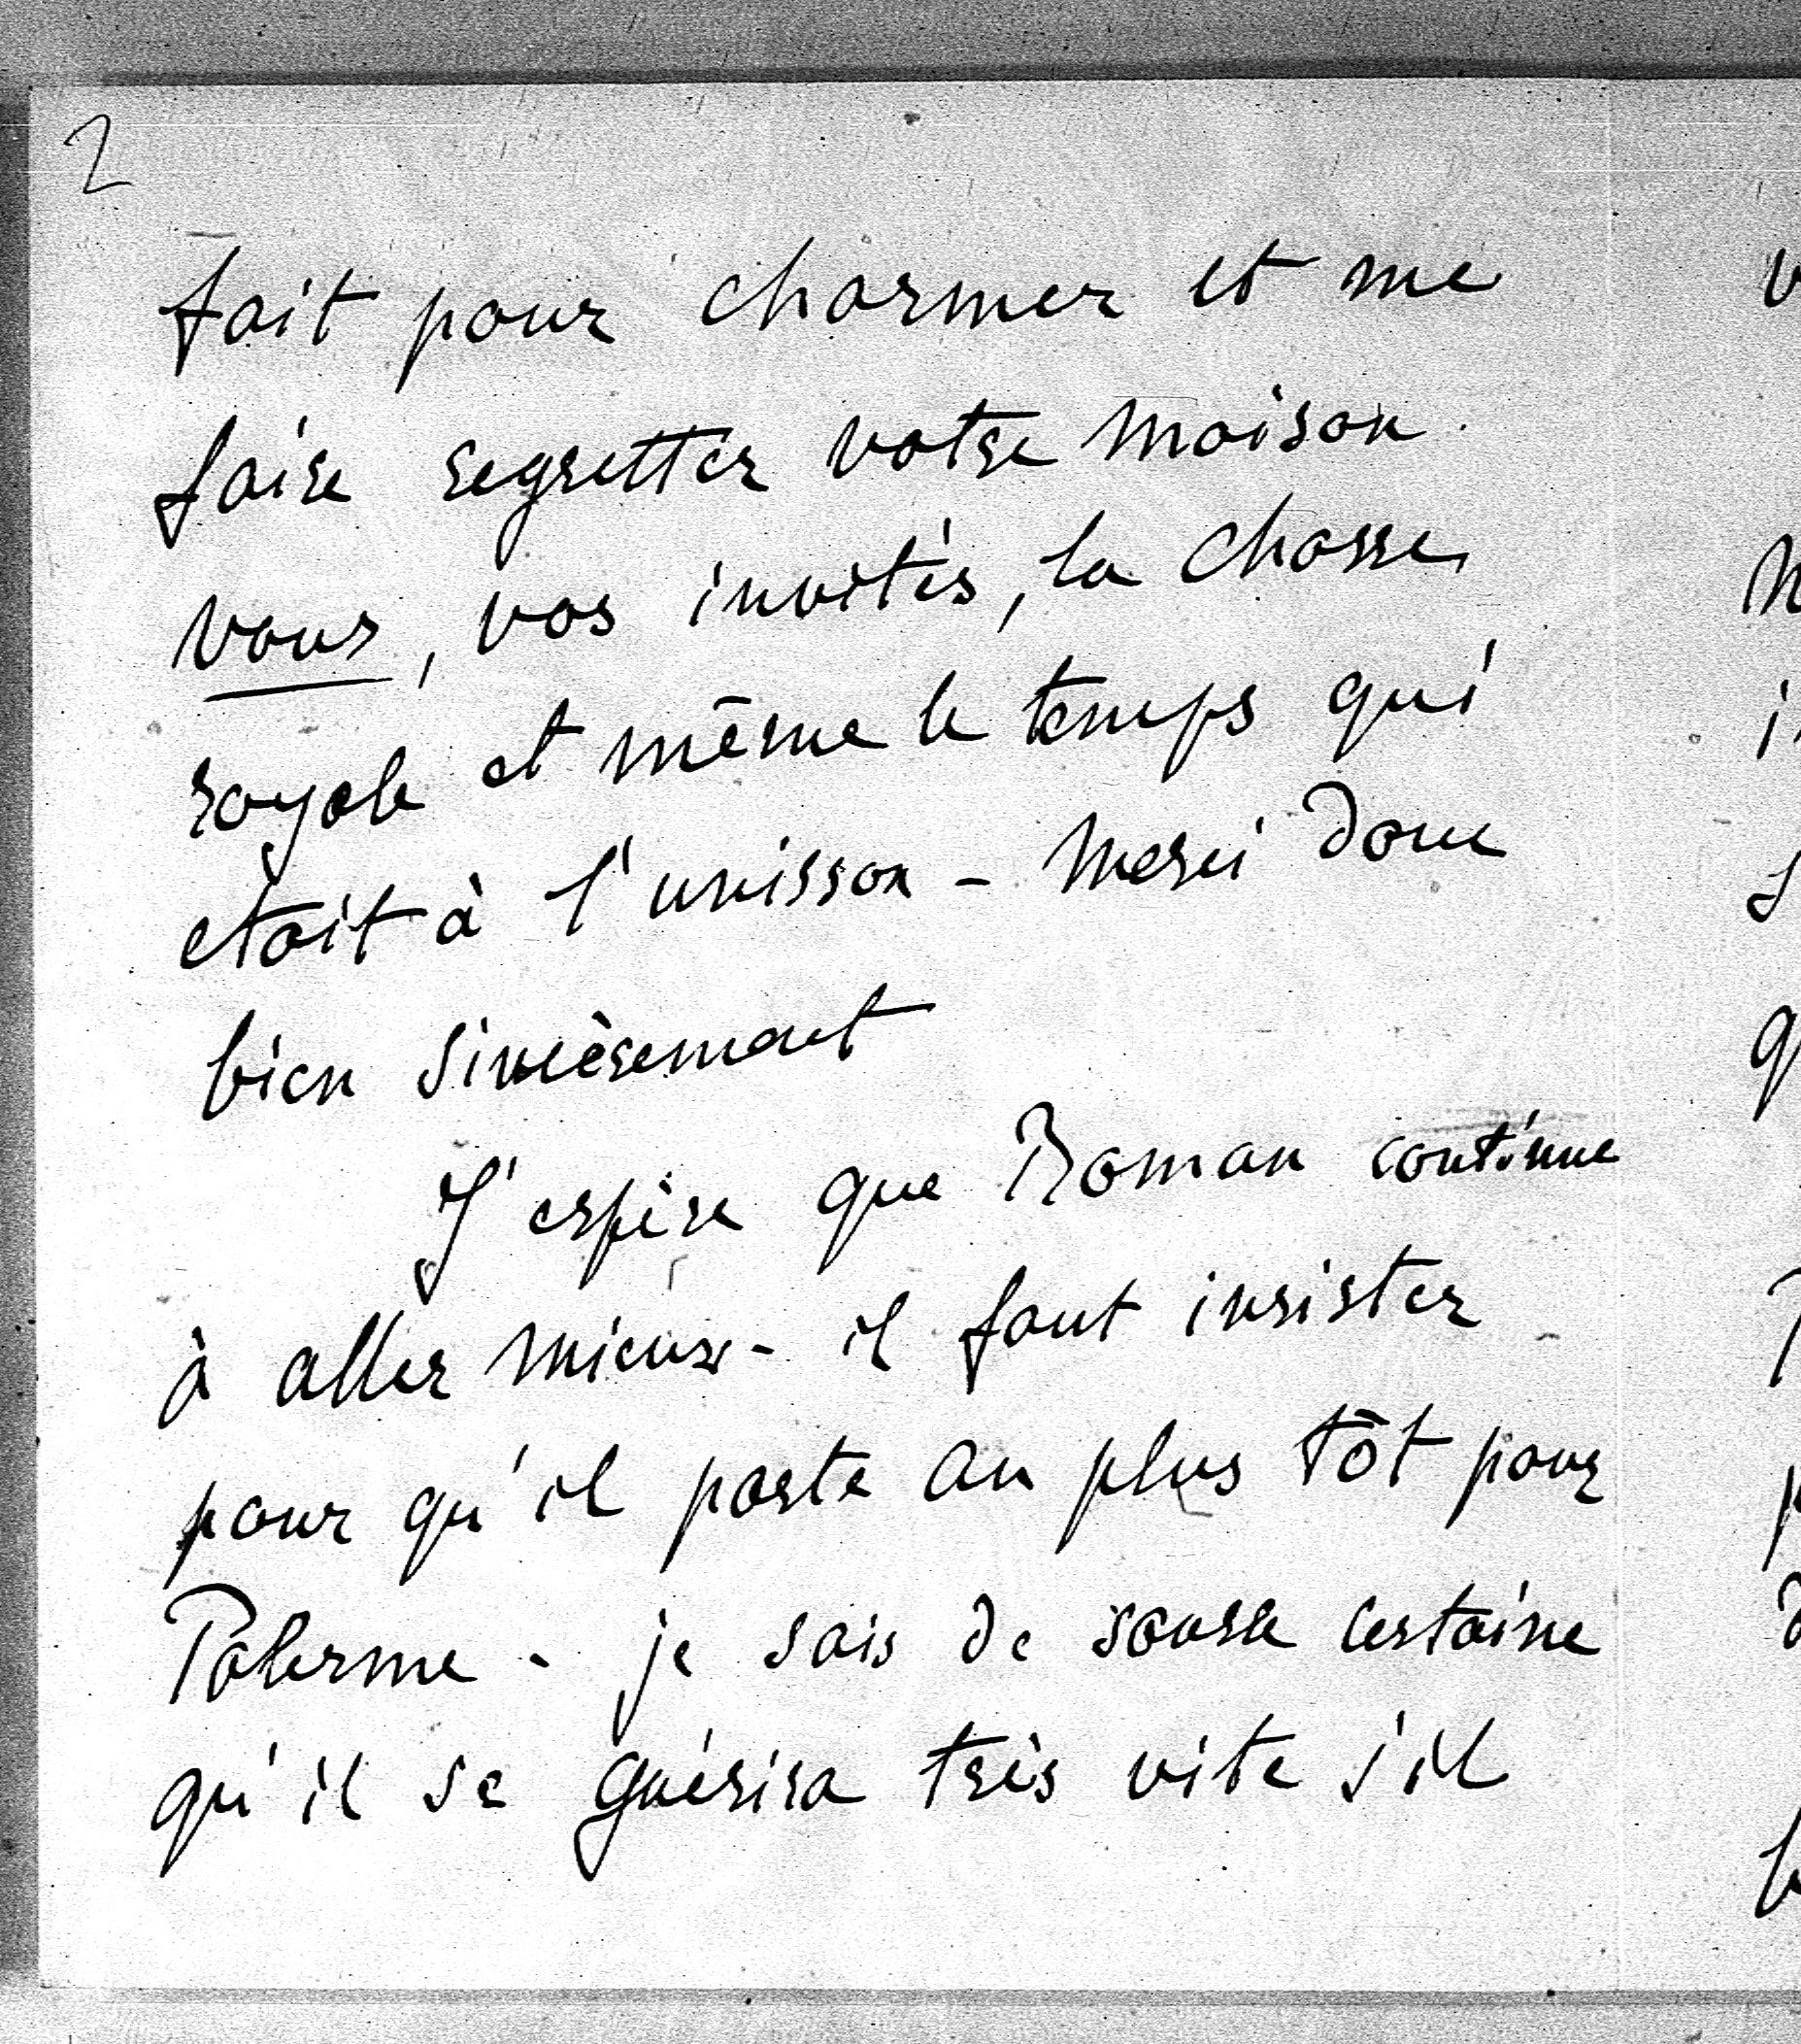 2
fait pour charmer et me
faire regretter votre maison.
vous, vos invités, la chasse
royale et même le temps qui
etait à l'unisson - Merci donc
bien sincèrement
J'espère que Roman continue
à aller mieux - il faut insister
pour qu'il parte au plus tôt pour
Palerme - je sais de source certaine
qu'il se guérira très vite s'il